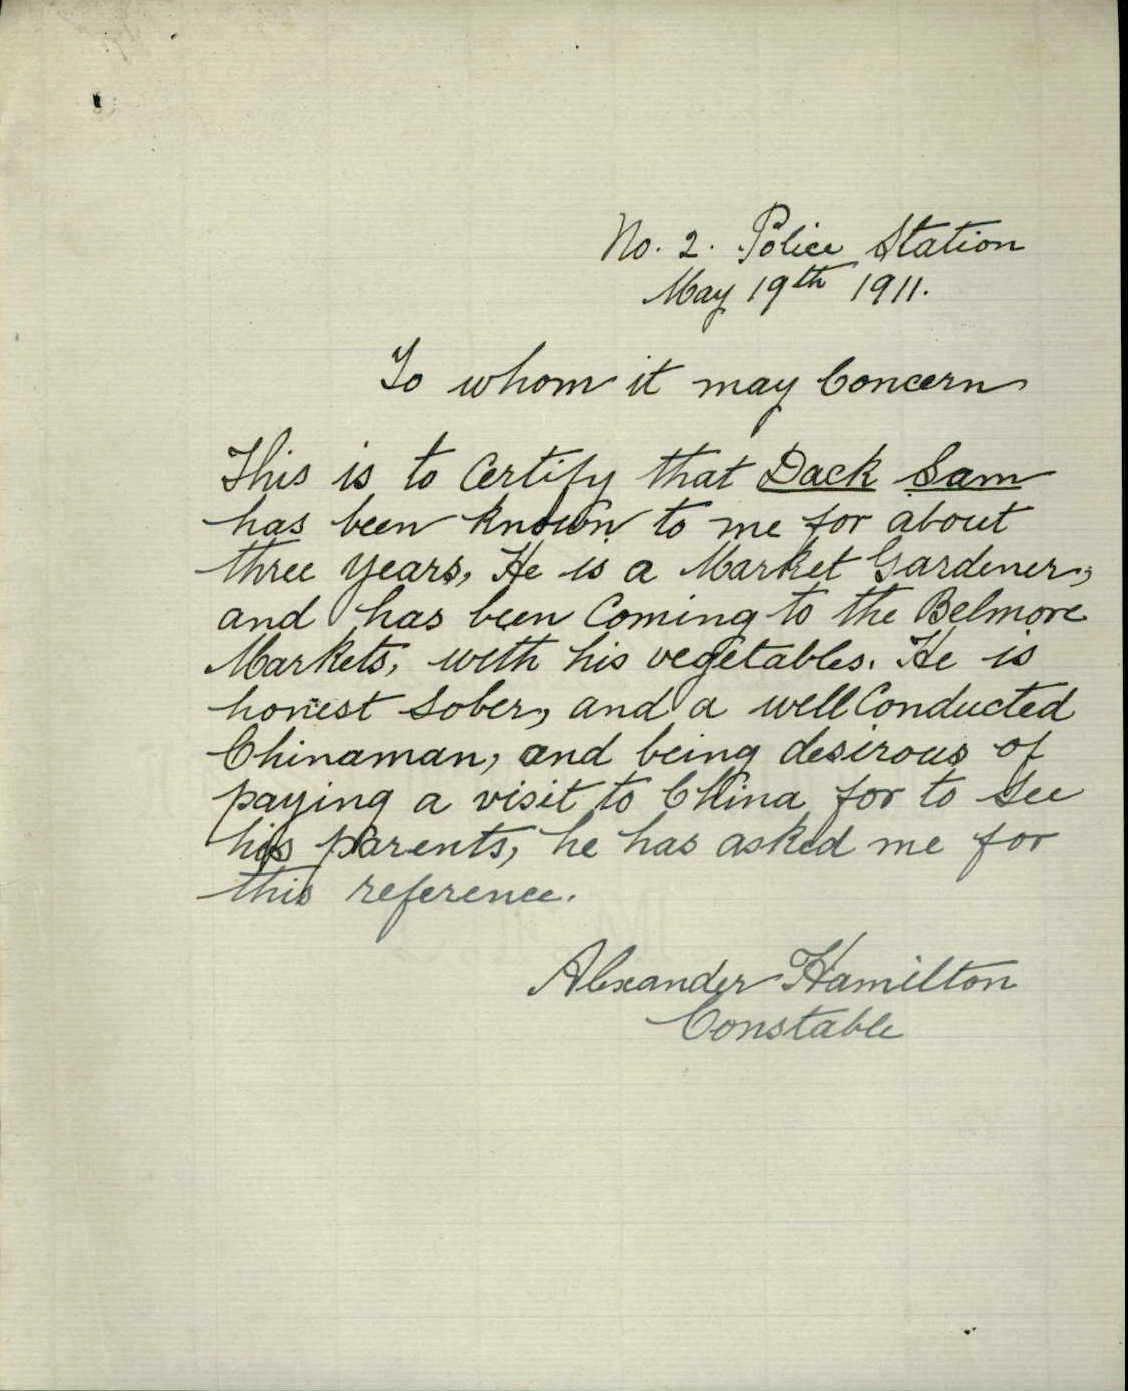 No. 2. Police Station
May 19th 1911.
To whom it may Concern
This is to Certify that Dack Sam
has been known to me for about
three years, He is a Market Gardener,
and has been Coming to the Belmore
Markets, with his vegetables. He is
honest Sober, and a well Conducted
Chinaman, and being desirous of
paying a visit to China for to See
his parents, he has asked me for
this reference.
Alexander Hamilton
Constable